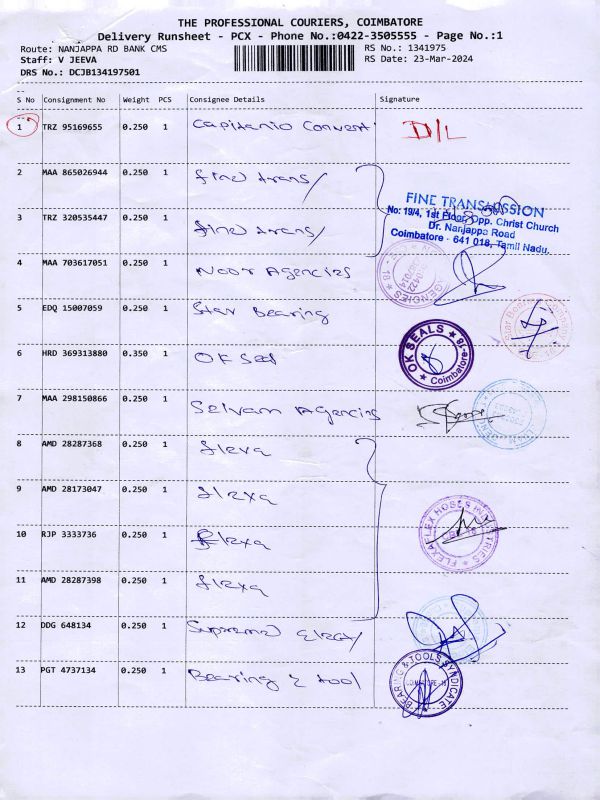 THE PROFESSIONAL COURIERS, COIMBATORE
Delivery Runsheet - PCX - Phone No.:0422-3505555 - Page No.:1
Route: NANJAPPA RD BANK CMS
RS No.: 1341975
Staff: V JEEVA
RS Date: 23-Mar-2024
DRS No.: DCJB134197501
S No Consignment No Weight PCS Consignee Details Signature
1 TRZ 95169655 0.250 1 Capitanio Convert D/L
2 MAA 865026944 0.250 1 fine trans/
FINE TRANSMISSION
No: 19/4, 1st Floor, Opp. Christ Church
Dr. Nanjappa Road
Coimbatore - 641 018, Tamil Nadu.
3 TRZ 320535447 0.250 1 fine trans/
4 MAA 703617051 0.250 1 Noor Agencies
AGENCIES
5 EDQ 15007059 0.250 1 Star Bearing
6 HRD 369313880 0.350 1 OK Seal
OK SEALS
Coimbatore-18
7 MAA 298150866 0.250 1 Selvam Agencies
8 AMD 28287368 0.250 1 flexa
9 AMD 28173047 0.250 1 flexa
10 RJP 3333736 0.250 1 Flexa
FLEXAFLEX HOSES INDUSTRIES
11 AMD 28287398 0.250 1 flexa
12 DDG 648134 0.250 1 Supreme Elect/
13 PGT 4737134 0.250 1 Bearing & tool
BEARING & TOOLS SYNDICATE